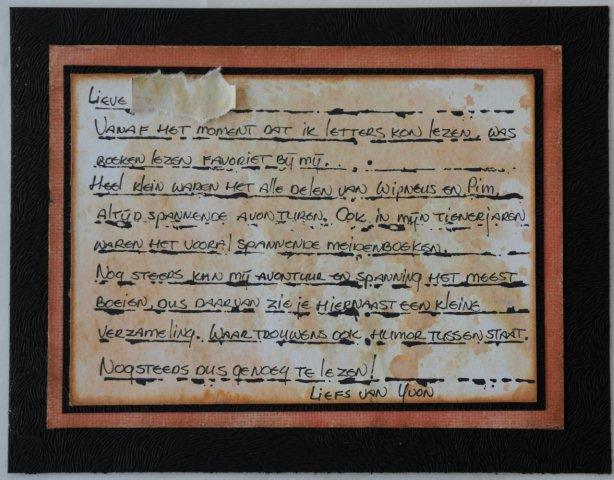 Lieve
Vanaf het moment dat ik letters kon lezen, was
boeken lezen favoriet bij mij.
Heel klein waren het alle delen van Wipneus en Pim,
altijd spannende avonturen. Ook in mijn tienerjaren
waren het vooral spannende meidenboeken.
Nog steeds kan mij avontuur en spanning het meest
boeien, dus daarvan zie je hiernaast een kleine
verzameling. Waar trouwens ook humor tussen staat.
Nog steeds dus genoeg te lezen!
Liefs van Yvon